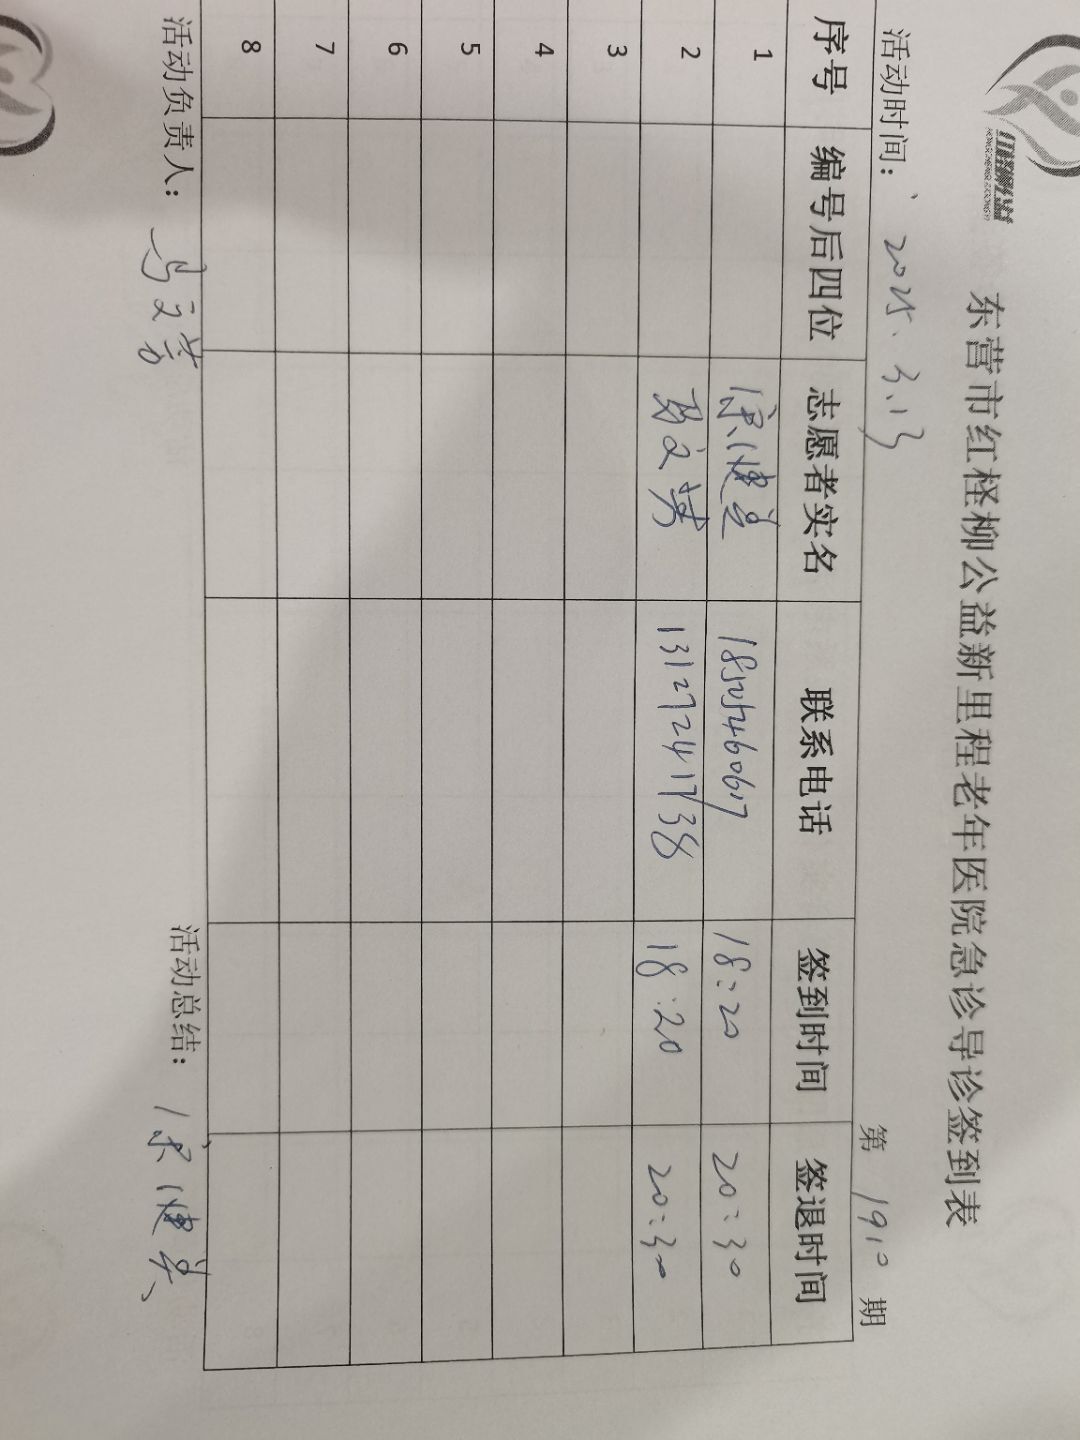 东营市红柽柳公益新里程老年医院急诊导诊签到表
活动时间： 2025.3.13 第 1910 期
序号 编号后四位 志愿者实名 联系电话 签到时间 签退时间
1 18505460617 18:20 20:30
2 13127241738 18:20 20:30
3
4
5
6
7
8
活动负责人： 活动总结：